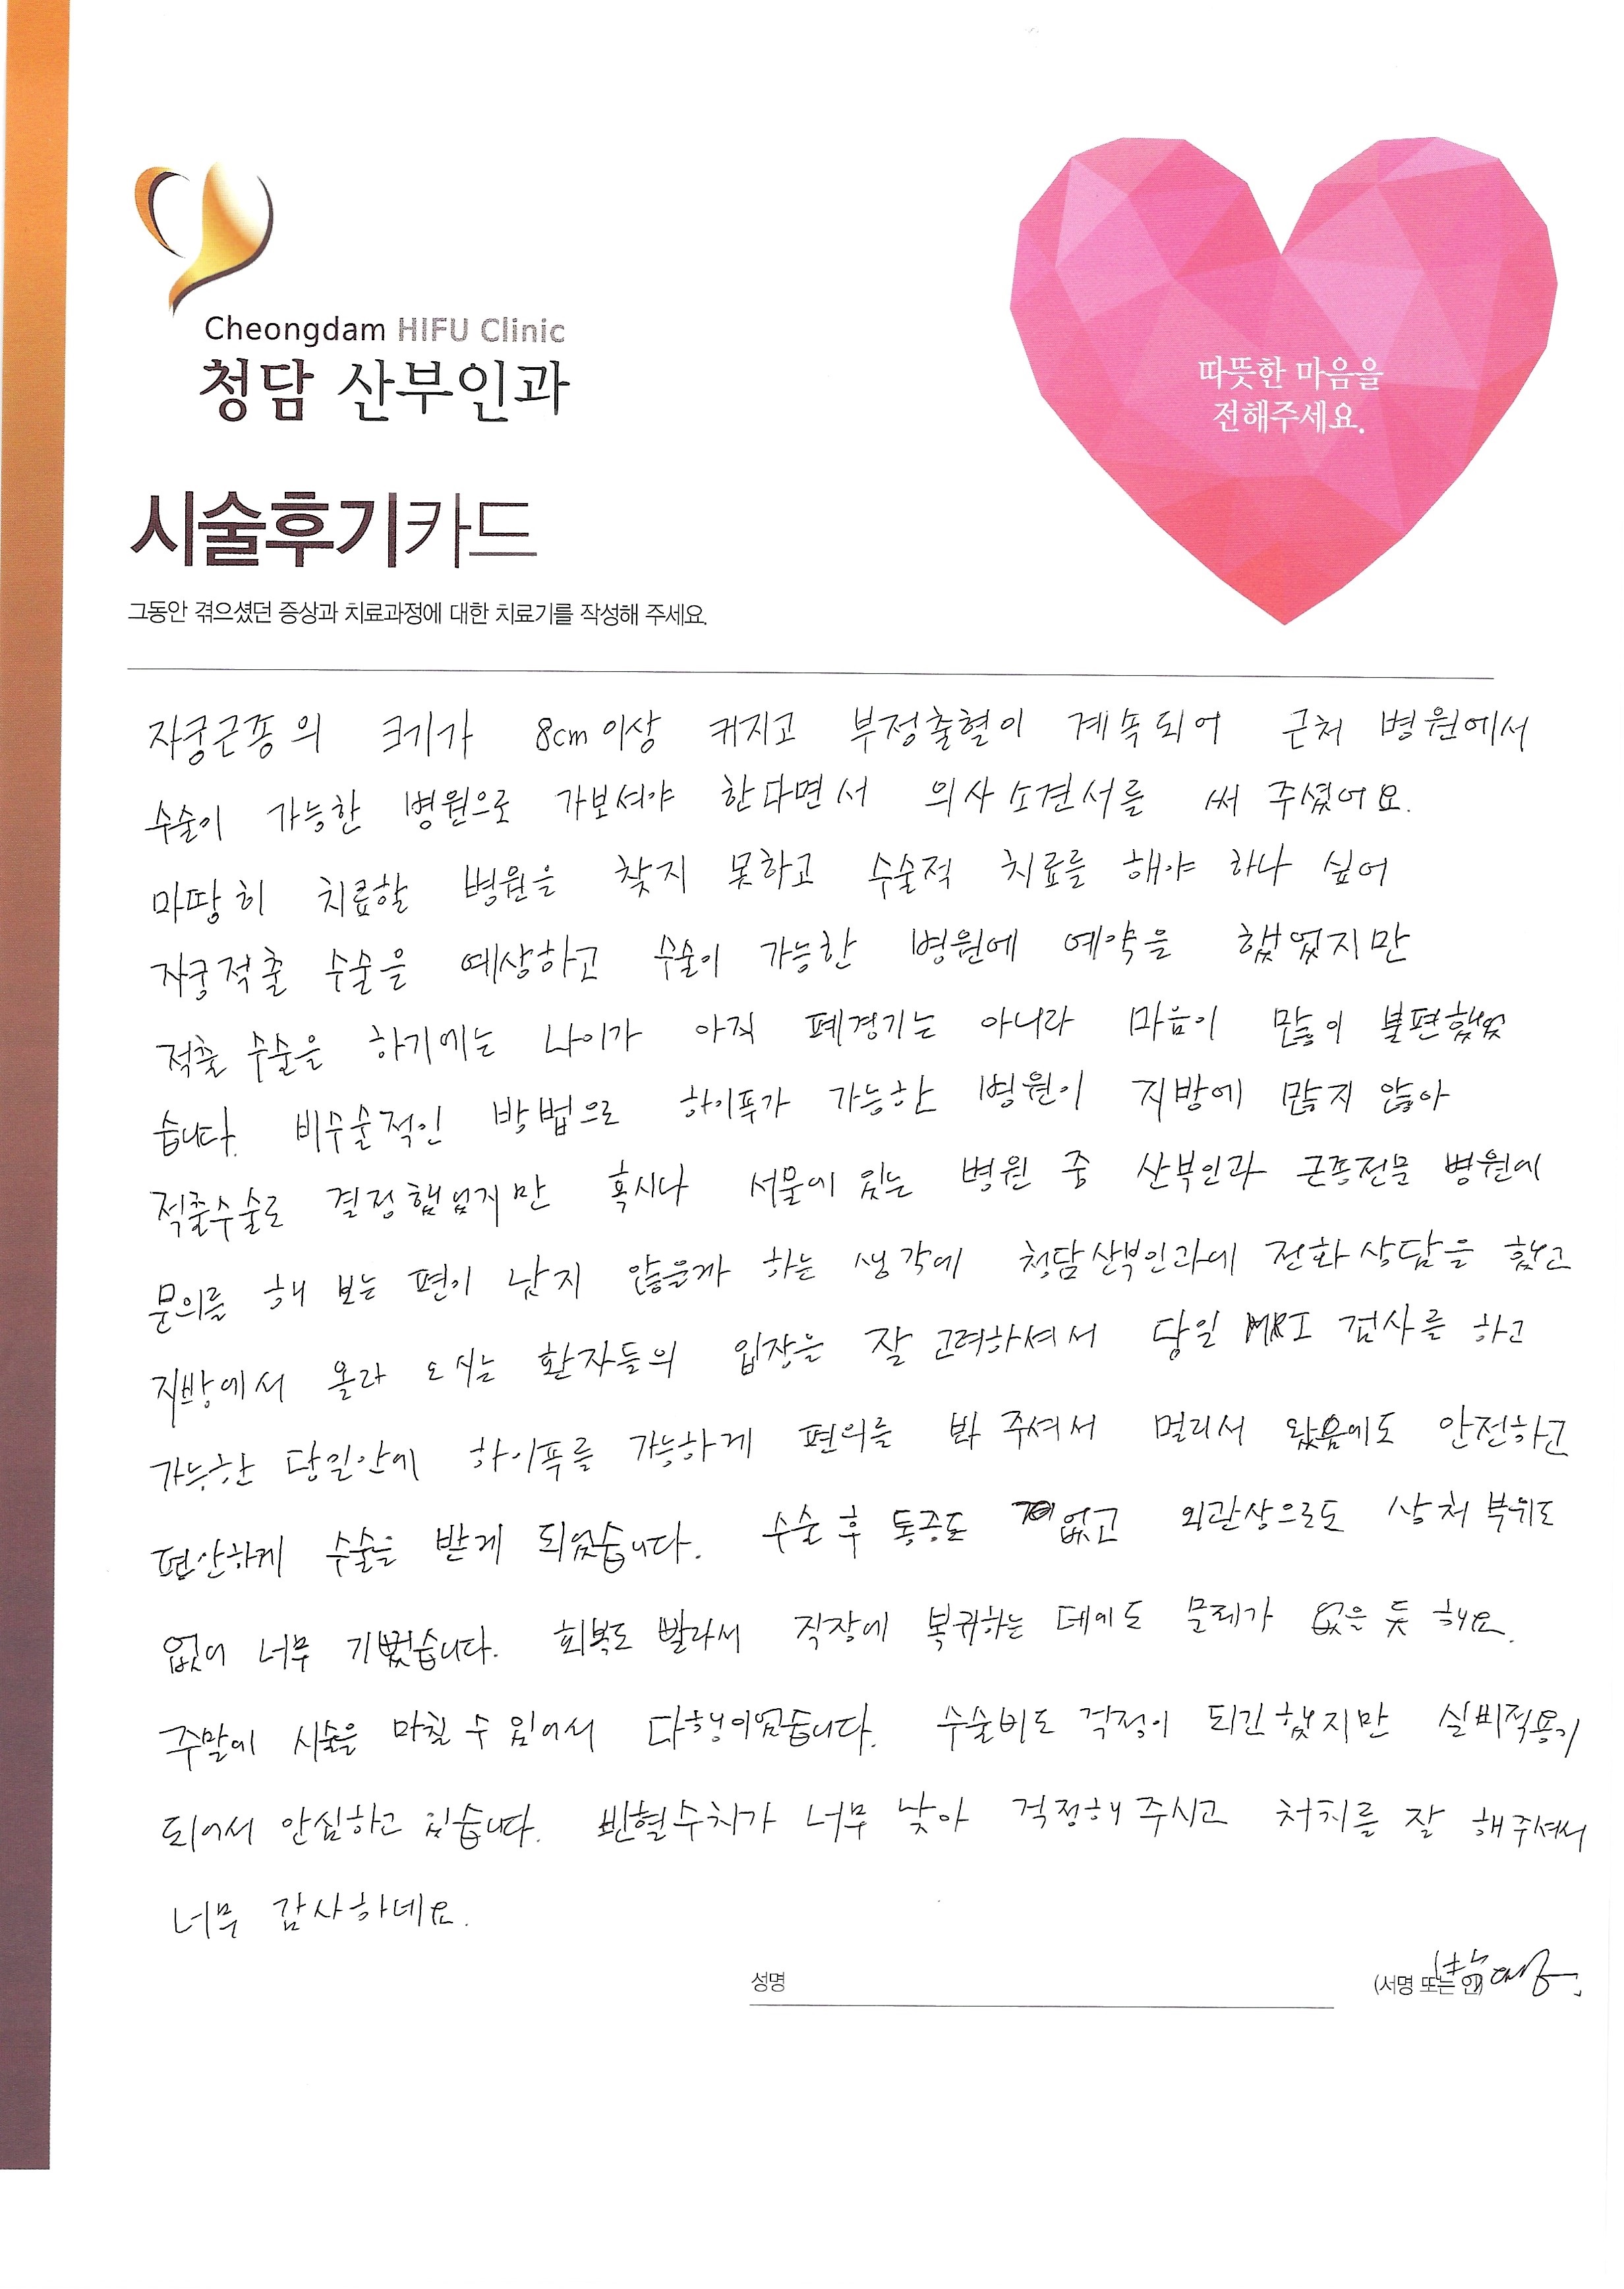 Cheongdam HIFU Clinic
청담 산부인과
따뜻한 마음을
전해주세요.
시술후기카드
그동안 겪으셨던 증상과 치료과정에 대한 치료기를 작성해 주세요.
자궁근종의 크기가 8cm이상 커지고 부정출혈이 계속되어 근처 병원에서
수술이 가능한 병원으로 가보셔야 한다면서 의사소견서를 써 주셨어요.
마땅히 치료할 병원을 찾지 못하고 수술적 치료를 해야 하나 싶어
자궁적출 수술을 예상하고 수술이 가능한 병원에 예약을 했었지만
적출수술을 하기에는 나이가 아직 폐경기는 아니라 마음이 많이 불편했었
습니다. 비수술적인 방법으로 하이푸가 가능한 병원이 지방에 많지 않아
적출수술로 결정했었지만 혹시나 서울에 있는 병원 중 산부인과 근종전문 병원에
문의를 해 보는 편이 낫지 않을까 하는 생각에 청담산부인과에 전화상담을 했고
지방에서 올라 오시는 환자들의 입장을 잘 고려하셔서 당일 MRI 검사를 하고
가능한 당일안에 하이푸를 가능하게 편의를 봐 주셔서 멀리서 왔음에도 안전하고
편안하게 수술을 받게 되었습니다. 수술 후 통증도 없고 외관상으로도 상처부위도
없어 너무 기뻤습니다. 회복도 빨라서 직장에 복귀하는 데에도 문제가 없을 듯 해요.
주말에 시술을 마칠 수 있어서 다행이었습니다. 수술비도 걱정이 되긴 했지만 실비적용이
되어서 안심하고 있습니다. 빈혈수치가 너무 낮아 걱정해 주시고 처치를 잘 해주셔서
너무 감사하네요.
성명 (서명 또는 인)